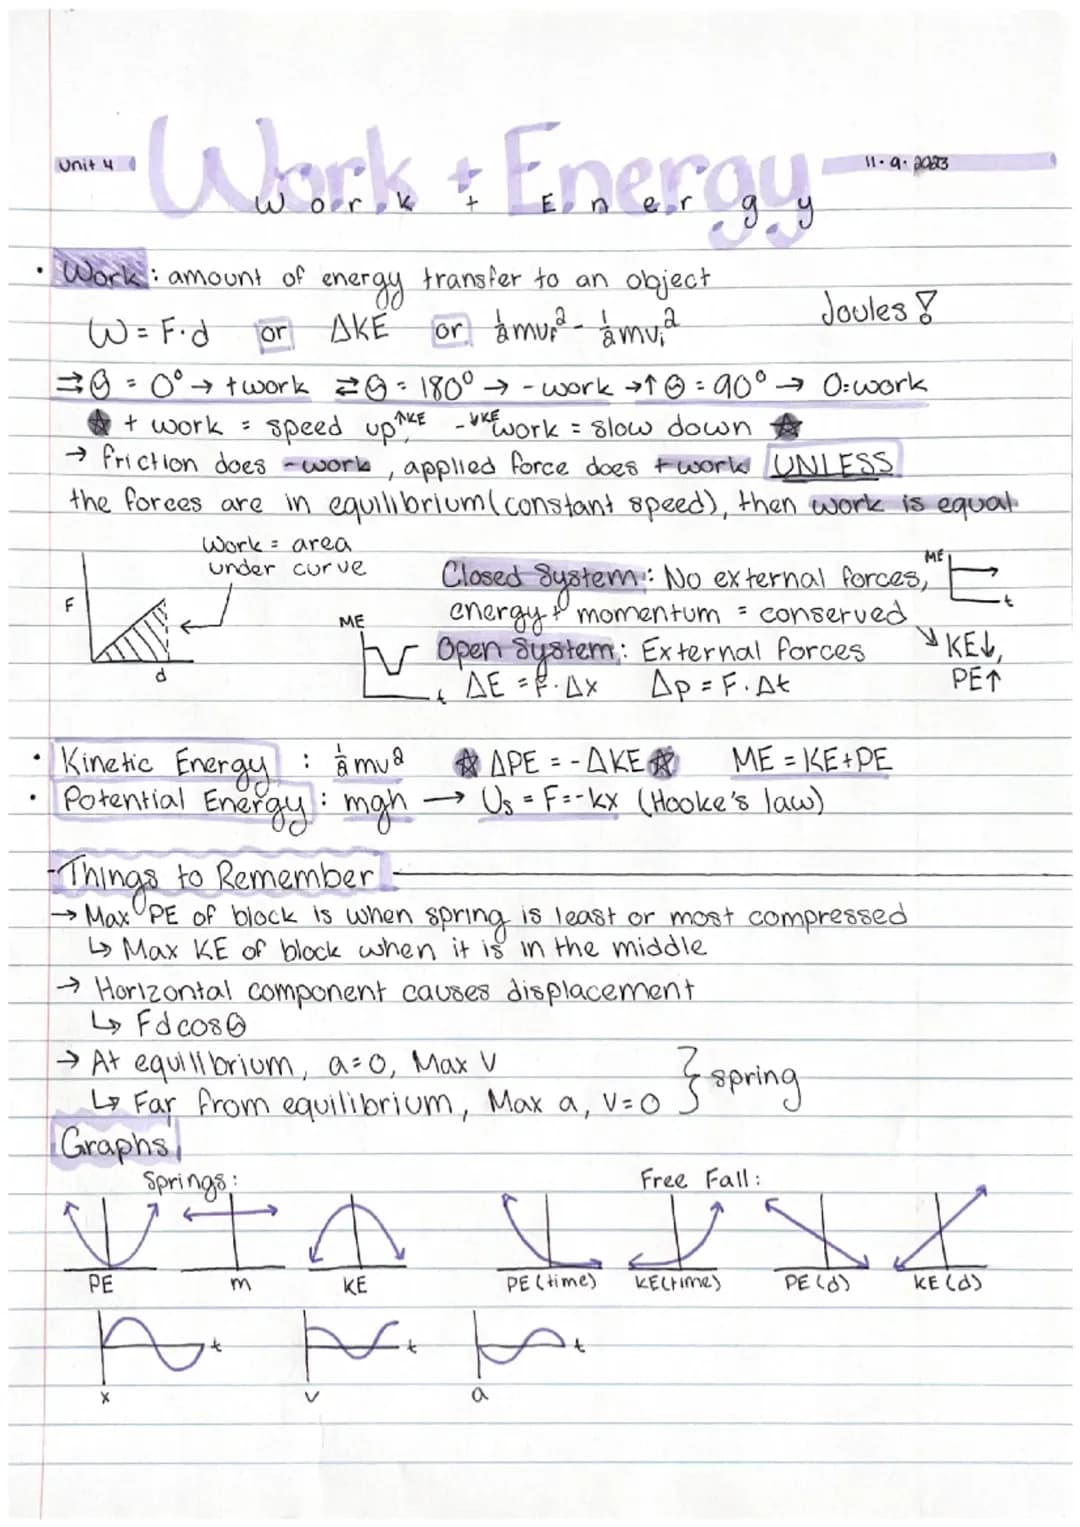 Unit 4
Work + Energy
11.9.2023
Work + Energy
• Work: amount of energy transfer to an object
W = F·d or ΔKE or ½mvf² - ½mvi²
Joules!
⇉θ = 0° → +work ⇄θ = 180° → -work →↑θ = 90° → 0=work
☆ + work = speed up ↑KE - ↓KE work = slow down ☆
→ friction does -work, applied force does +work UNLESS
the forces are in equilibrium (constant speed), then work is equal
Work = area
under curve
F
d
ME
t
Closed System: No external forces,
energy + momentum = conserved
ME
t
Open System: External forces
ΔE = F·Δx Δp = F·Δt
↘ KE↓,
PE↑
• Kinetic Energy : ½mv² ☆ ΔPE = -ΔKE ☆ ME = KE+PE
• Potential Energy : mgh → Us = F=-kx (Hooke's law)
-Things to Remember
→ Max PE of block is when spring is least or most compressed
↳ Max KE of block when it is in the middle
→ Horizontal component causes displacement
↳ Fdcosθ
→ At equilibrium, a=0, Max V
↳ Far from equilibrium, Max a, V=0
} spring
Graphs
Springs:
Free Fall:
PE
m
KE
PE (time)
KE(time)
PE (d)
KE (d)
t
t
t
x
v
a